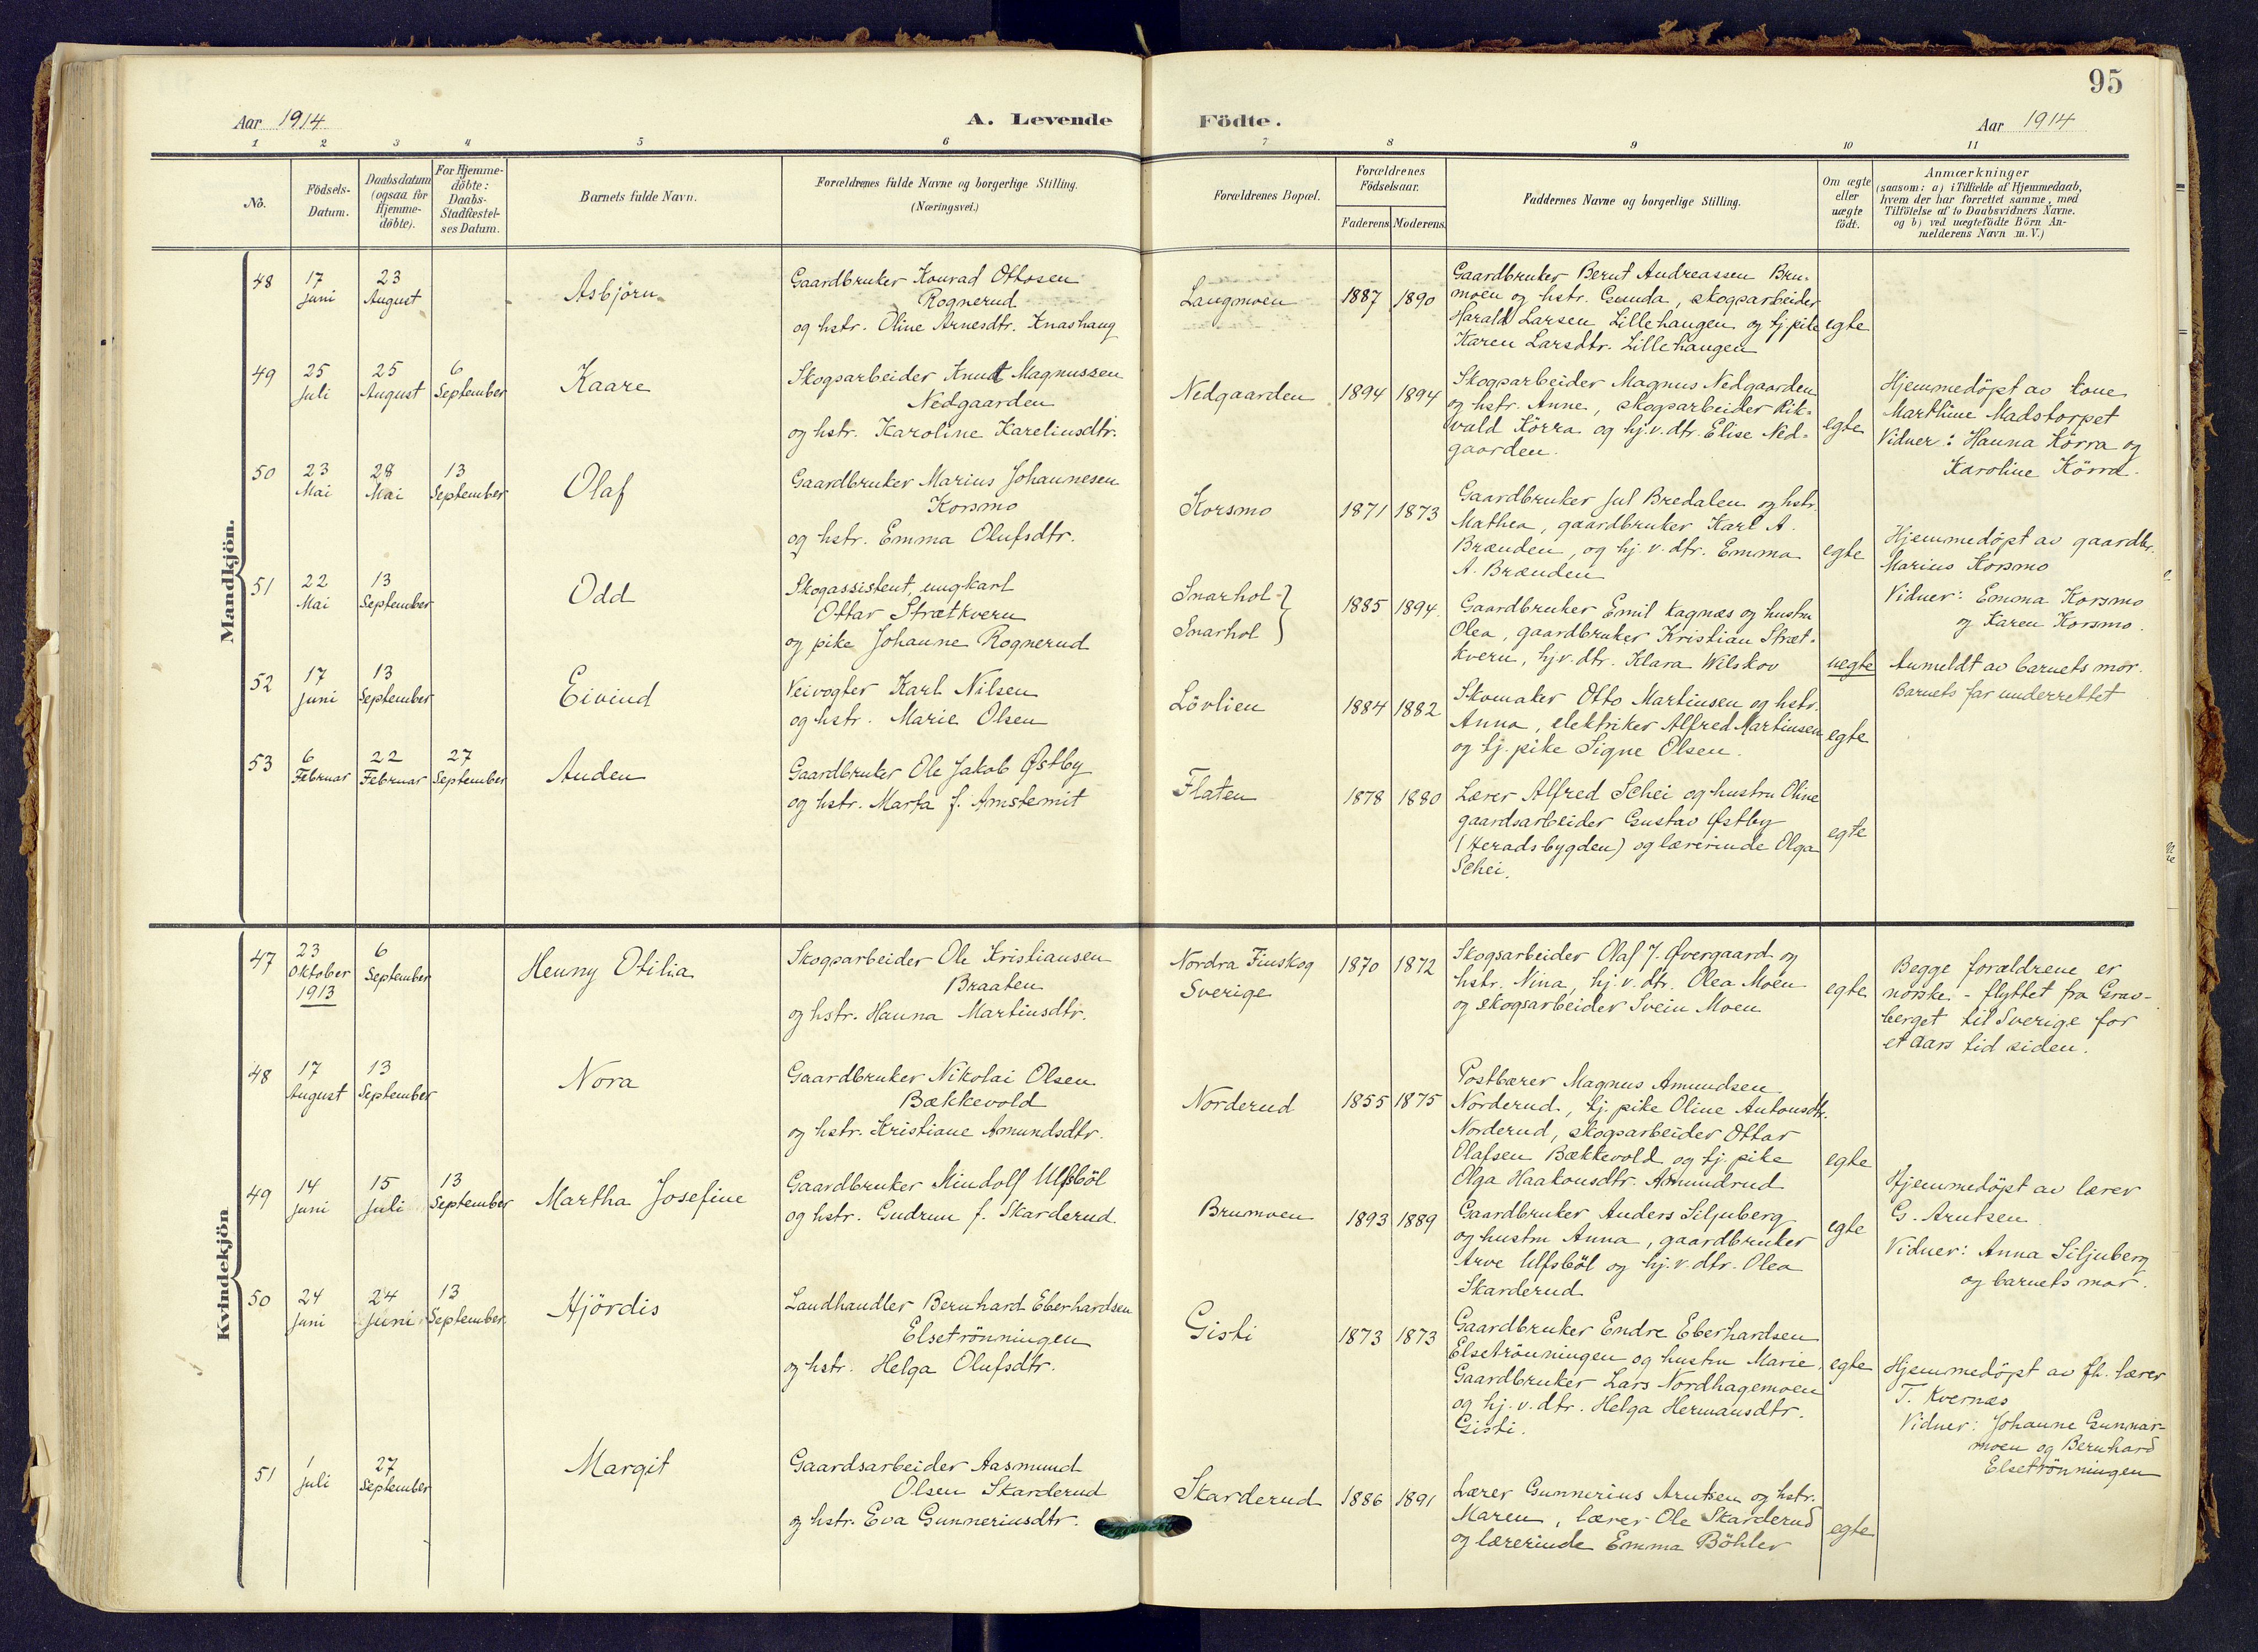 95
Aar 1914
A. Levende Födte.
Aar 1914
1 2 3 4 5 6 7 8 9 10 11
No.
Födsels-
Datum.
Daabsdatum
(ogsaa for
Hjemme-
döbte).
For Hjemme-
döbte:
Daabs-
Stadfæstel-
ses Datum.
Barnets fulde Navn.
Forældrenes fulde Navne og borgerlige Stilling.
(Næringsvei.)
Forældrenes Bopæl.
Forældrenes
Födselsaar.
Faderens Moderens
Faddernes Navne og borgerlige Stilling.
Om ægte
eller
uægte
födt.
Anmærkninger
(saasom: a) i Tilfælde af Hjemmedaab,
hvem der har forrettet samme, med
Tilföielse af to Daabsvidners Navne.
og b) ved uægtefödte Börn An-
melderens Navn m. V.)
Mandkjön.
48
17
juni
23
August
Asbjörn
Gaardbruker Konrad Ottosen
Rognerud
og hstr. Oline Arnesdtr. Knashaug
Langmoen
1887
1890
Gaardbruker Bernt Andreassen Bru-
moen og hstr. Gunda, skogsarbeider
Harald Larsen Lillehaugen og tj.pike
Karen Larsdtr. Lillehaugen
egte
49
25
Juli
25
August
6
September
Kaare
Skogsarbeider Knut Magnussen
Nedgaarden
og hstr. Karoline Kareliusdtr.
Nedgaarden
1894
1894
Skogsarbeider Magnus Nedgaarden
og hstr. Anne, skogsarbeider Rik-
vald Körra og hj.v.dtr. Elise Ned-
gaarden.
egte
Hjemmedöpt av kone
Marthine Madstorpet
Vidner: Hanna Körra og
Karoline Körra.
50
23
Mai
28
Mai
13
September
Olaf
Gaardbruker Marius Johannesen
Korsmo
og hstr. Emma Olufsdtr.
Korsmo
1871
1873
Gaardbruker Jul Bredalen og hstr.
Mathea, gaardbruker Karl A.
Brænden, og hj.v.dtr. Emma
A. Brænden
egte
Hjemmedöpt av gaardbr.
Marius Korsmo
Vidner: Emma Korsmo
og Karen Korsmo.
51
22
Mai
13
September
Odd
Skogassistent, ungkarl
Ottar Strætkvern
og pike Johanne Rognerud
Snarhol
Snarhol
1885
1894
Gaardbruker Emil Kagnæs og hustru
Olea, gaardbruker Kristian Stræt-
kvern, hj.v.dtr. Klara Wilskov
uegte
Anmeldt av barnets mor.
Barnets far underrettet
52
17
juni
13
September
Eivind
Veivogter Karl Nilsen
og hstr. Marie Olsen
Lövlien
1884
1882
Skomaker Otto Martinsen og hstr.
Anna, elektriker Alfred Martinsen
og tj. pike Signe Olsen.
egte
53
6
Februar
22
Februar
27
September
Auden
Gaardbruker Ole Jakob Østby
og hstr. Marta f. Arnstemit
Flaten
1878
1880
Lærer Alfred Schei og hustru Oline
gaardsarbeider Gustav Østby
(Heradsbygden) og lærerinde Olga
Schei.
egte
Kvindekjön
47
23
Oktober
1913
6
September
Henny Otilia
Skogsarbeider Ole Kristiansen
Braaten
og hstr. Hanna Martinsdtr.
Nordra Finskog
Sverige
1870
1872
Skogsarbeider Olaf J. Øvergaard og
hstr. Nina, hj.v.dtr. Olea Moen
og skogsarbeider Svein Moen
egte
Begge forældrene er
norske - flyttet fra Grav-
berget til Sverige for
et aars tid siden.
48
17
August
13
September
Nora
Gaardbruker Nikolai Olsen
Bækkevold
og hstr. Kristiane Amundsdtr.
Norderud
1855
1875
Postbærer Magnus Amundsen
Norderud, tj. pike Oline Antonsdtr.
Norderud, skogsarbeider Ottar
Olafsen Bækkevold og tj. pike
Olga Haakonsdtr. Amundrud
egte
49
14
juni
15
Juli
13
September
Martha Josefine
Gaardbruker Mindolf Ulfsböl
og hstr. Gudrun f. Skarderud.
Brumoen
1893
1889
Gaardbruker Anders Siljuberg
og hustru Anna, gaardbruker
Arve Ulfsböl og hj.v.dtr. Olea
Skarderud
egte
Hjemmedöpt av lærer
G. Arntsen.
Vidner: Anna Siljuberg
og barnets mor.
50
24
Juni
24
Juni
13
September
Hjördis
Landhandler Bernhard Eberhardsen
Elsetrönningen
og hstr. Helga Olufsdtr.
Gisti
1873
1873
Gaardbruker Endre Eberhardsen
Elsetrönningen og hustru Marie,
Gaardbruker Lars Nordhagemoen
og hj.v.dtr. Helga Hermansdtr.
Gisti.
egte
Hjemmedöpt av fh. lærer
T. Kvernæs
Vidner: Johanne Gunnar-
moen og Bernhard
Elsetrönningen
51
1
Juli
27
September
Margit
Gaardsarbeider Aasmund
Olsen Skarderud
og hstr. Eva Gunneriusdtr.
Skarderud
1886
1891
Lærer Gunnerius Arntsen og hstr.
Maren, lærer Ole Skarderud
og lærerinde Emma Böhler
egte